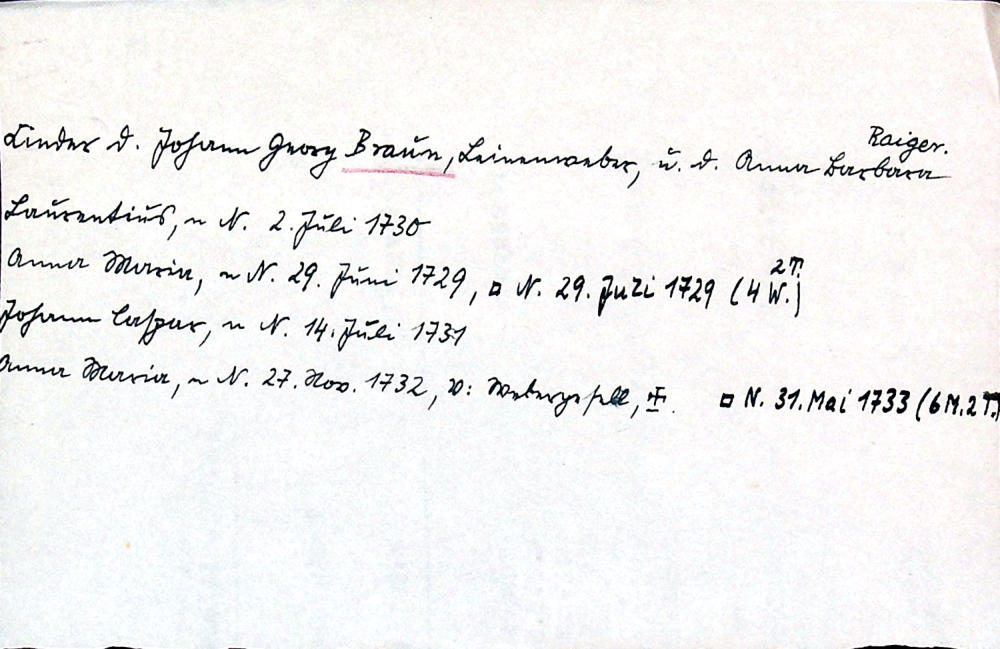 Raiger.
Kinder d. Johann Georg Braun, Leinenweber, u. d. Anna Barbara
Laurentius, ~ N. 2. Juli 1730
2T.
Anna Maria, ~ N. 29. Juni 1729, □ N. 29. Juli 1729 (4 W.)
Johann Caspar, ~ N. 14. Juli 1731
Anna Maria, ~ N. 27. Nov. 1732, V: Webergesell, □ N. 31. Mai 1733 (6 M. 2 T.)